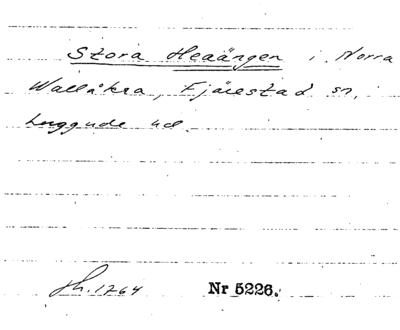 Stora Heaängen i Norra
Wallåkra, Fjärestad sn,
Luggude hd.
Jh. 1764 Nr 5226.